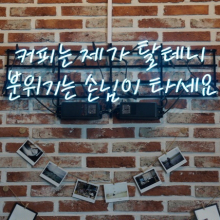 커피는 제가 탈테니
분위기는 손님이 타세요